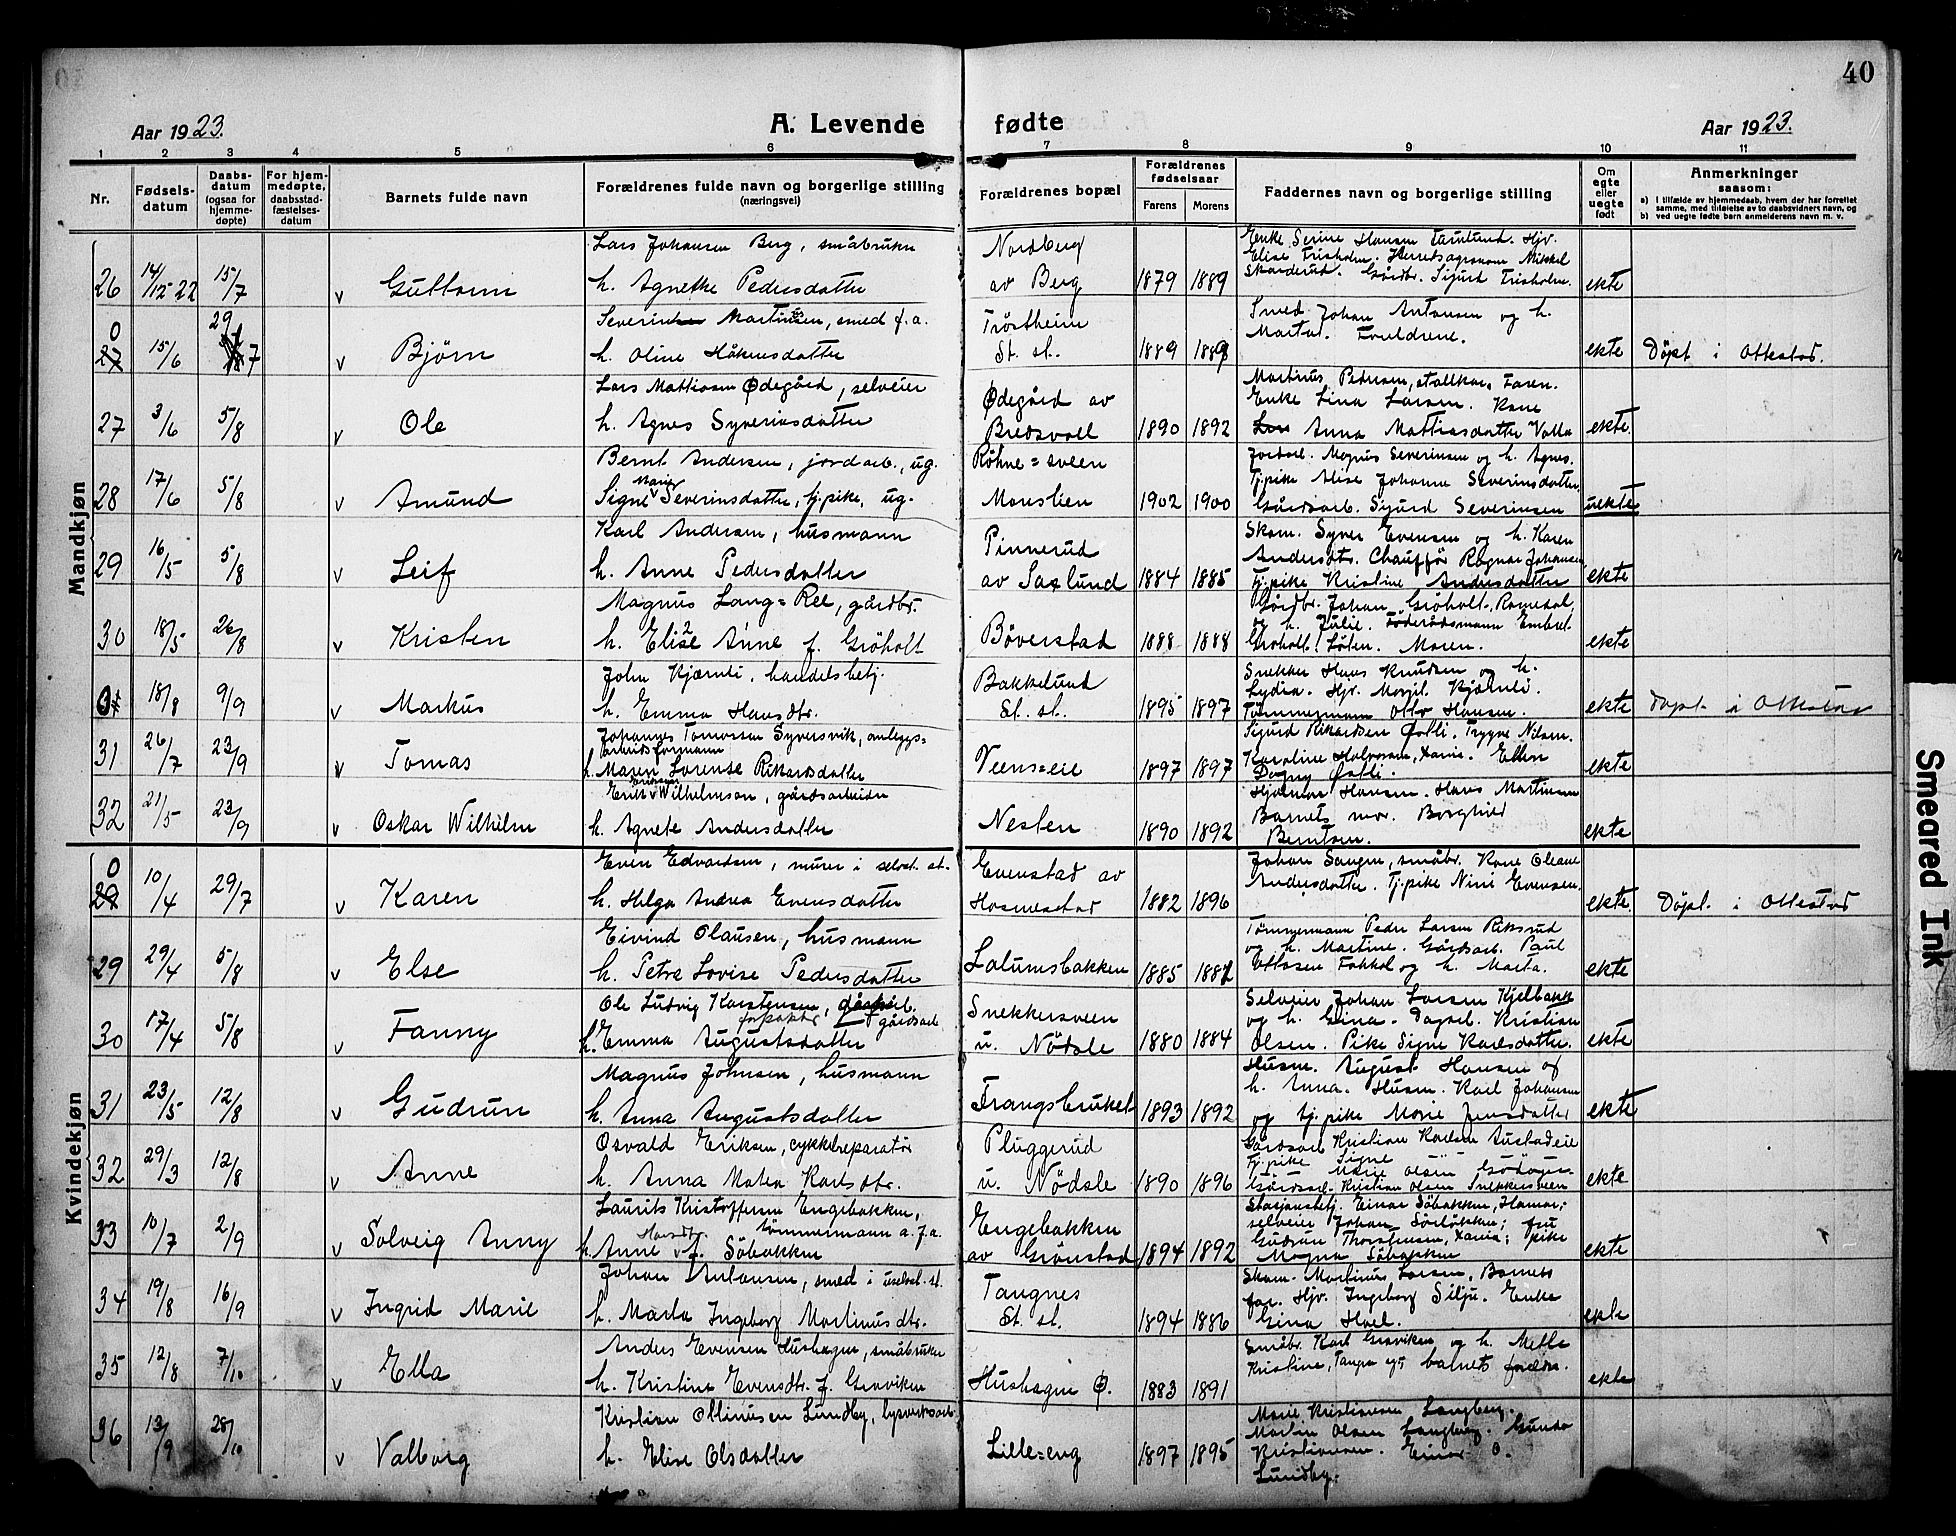 40
Aar 1923.
A. Levende fødte
Aar 1923.
1 2 3 4 5 6 7 8 9 10 11
Nr.
Fødsels-
datum
Daabs-
datum
(ogsaa for
hjemme-
døpte)
For hjem-
medøpte,
daabsstad-
fæstelses-
datum
Barnets fulde navn
Forældrenes fulde navn og borgerlige stilling
(næringsvei)
Forældrenes bopæl
Forældrenes
fødselsaar
Farens Morens
Faddernes navn og borgerlige stilling
Om
egte
eller
uegte
født
Anmerkninger
saasom:
a) I tilfælde av hjemmedaab, hvem der har forrettet
samme, med tilføielse av to daabsvidners navn, og
b) ved uegte fødte barn anmelderens navn m. v.
Mandkjøn
26 14/12-22 15/7 v Guttorm
Lars Johansen Berg, småbruker
h. Agnethe Pedersdatter
Nordberg
av Berg
1879 1889
Enke Serine Hansen Hjr.
Elise Frisholm. Herredsagronom Mikkel
Skarderud. Gårdbr. Sigurd Frisholm.
ekte
0 27 15/6 29/7 v Bjørn
Severin Martinsen, smed f.a.
h. Oline Håkensdatter
Trøstheim
St. sl.
1889 1889
Smed Johan Antonsen og h.
Marta. Foreldrene.
ekte Døpt i Ottestad.
27 3/6 5/8 v Ole
Lars Mattiasen Ødegård, selveier
h. Agnes Syverinsdatter
Ødegård av
Bredsvoll
1890 1892
Martinus Pedersen, stallkar. Faren.
Enke Lina Larsen. Kone
Anna Mattiasdatter Volla
ekte.
28 17/6 5/8 v Amund
Bernt Andersen, jordarb., ug.
Signe Marie Severinsdatter, tj.pike, ug.
Røhne=sveen
Monslien
1902 1900
Jordarb. Magnus Severinsen og h. Agnes.
Tj.pike Alise Johanne Severinsdatter.
Gårdsarb. Sigurd Severinsen
uekte
29 16/5 5/8 v Leif
Karl Andersen, husmann
h. Anne Pedersdatter
Pinnerud
av Saslund
1884 1885
Skom. Syver Evensen og h. Karen
Andersdt. Chauffør Ragnar Johansen
Tj.pike Kristine Andersdatter
ekte
30 18/5 26/8 v Kristen
Magnus Lang=Ree, gårdbr.
h. Elise Anne f. Grøholt
Bøverstad
1888 1888
Gårdbr. Johan Grøholt, Romedal,
og h. Julie. Føderådsmann Embret
Grøholt, Løten. Moren.
ekte
0 18/8 9/9 v Markus
John Kjærnli, handelsbetj.
h. Emma Hansdtr.
Bakkelund
St. sl.
1895 1897
Snekker Hans Knudsen og h.
Lydia. Hjr. Margit Kjærnli.
Tømmermann Otto Hansen.
ekte Døpt i Ottestad
31 26/7 23/9 v Tomas
Johannes Tomassen Syversvik, anleggs=
arbeidsformann
h. Maren Lorense Rikardsdatter
Veenseie
1897 1897
Sigurd Rikardsen Østli. Trygve Nilsen.
Karoline Halvorsen, Xania. Ellen
Dagny Østli.
ekte
32 21/5 23/9 v Oskar Wilhelm
Erik Wilhelmsen, gårdsarbeider
h. Agnete Andersdatter
Nesten
1890 1892
Hjalmar Hansen. Hans Martinsen
Barnets mor. Borghild
Berntsen.
ekte
Kvindekjøn
0 29 10/4 29/7 v Karen
Even Edvardsen, murer i selvst. st.
h. Helga Andrea Evensdatter
Evenstad av
Hosmestad
1882 1896
Johan Sangen, småbr. Kone Oleane
Andersdatter. Tj.pike Nini Evensen.
ekte. Døpt i Ottestad
29 29/4 5/8 v Else
Eivind Olausen, husmann
h. Petra Lovise Pedersdatter
Lalumsbakken
1885 1882
Tømmermann Peder Larsen Riksrud
og h. Martine. Gårdsarb. Paul
Ottosen Fokhol og h. Marta.
ekte
30 17/4 5/8 v Fanny
Ole Ludvig Karstensen, gårdsarb.
h. Emma Augustsdatter
Snekkersveen
u. Nødsle
1880 1884
Selveier Johan Larsen Kjelbakk
og h. Gina. Dagarb. Kristian
Olsen. Pike Signe Karlsdatter.
ekte
31 23/5 12/8 v Gudrun
Magnus Johnsen, husmann
h. Anna Augustsdatter
Frangsbruket
1893 1892
Husm. August Hansen og
h. Anna. Husm. Karl Johansen
og tj.pike Marie Jensdatter
ekte
32 29/3 12/8 v Anne
Osvald Eriksen, cykkelreparatør
h. Anna Matea Karlsdtr.
Pluggerud
u. Nødsle
1890 1896
Gårdsarb. Kristian Karlsen Austadeie
Tj.pike Signe
Marie Olsen
Gårdsarb. Kristian Olsen Snekkersveen
ekte
33 10/7 2/9 v Solveig Anny
Laurits Kristoffersen Engebakken,
tømmermann a.f.a.
h. Anne Hansdtr. f. Søbakken
Engebakken
av Grønstad
1894 1892
Stasjonsbetj. Einar Søbakken, Hamar;
selveier Johan Sørløkken; fru
Gudrun Thorstensen, Xania; pike
Magna Søbakken
ekte
34 19/8 16/9 v Ingrid Marie
Johan Antonsen, smed i uselvst. st.
h. Marta Ingeborg Martinusdtr.
Tangnes
St. sl.
1894 1886
Skom. Martinus Larsen, Barnets
far. Hjr. Ingeborg Silju. Enke
Gina Hoel.
ekte
35 12/8 7/10 v Ella
Anders Evensen Hushagen, småbruker
h. Kristine Evensdtr. f. Graviken
Hushagen Ø.
1883 1891
Småbr. Karl Graviken og h. Mette
Kristine, Tanga og barnets foreldre.
ekte
36 13/9 28/10 v Valborg
Kristian Ottinusen Lundby, lysverksarb.
h. Elise Olsdatter
Lille=eng
1897 1895
Marie Kristiansen Langberg.
Martin Olsen Langberg. Gunda
Kristiansen. Einar O.
Lundby.
Smeared Ink